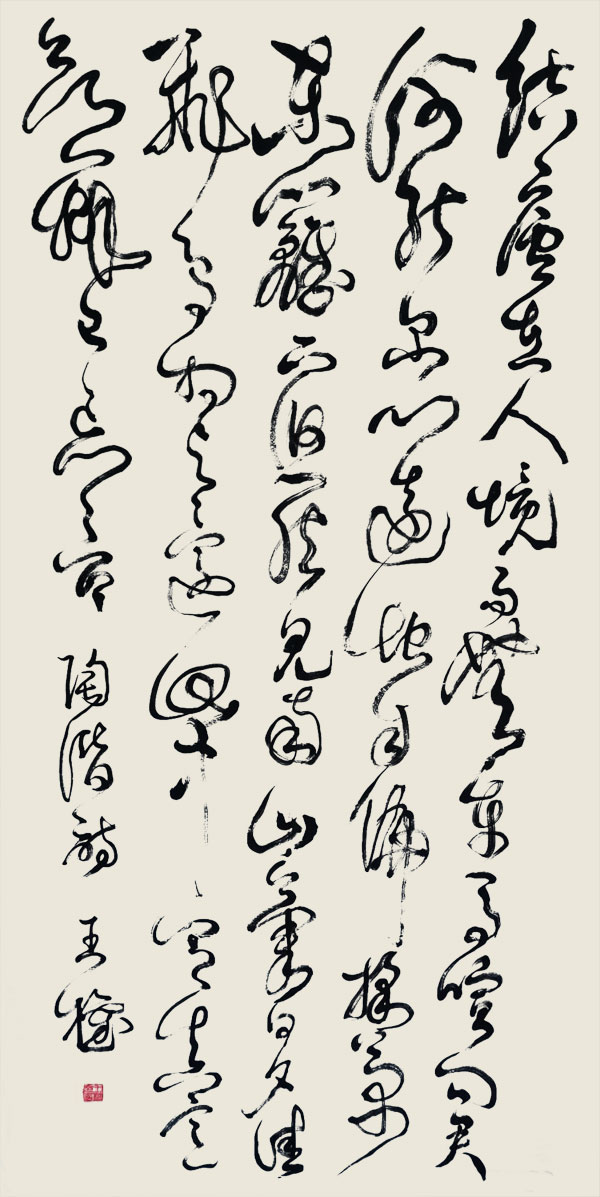 結廬在人境而無車馬喧問君
何能尔心遠地自偏採菊
東籬下悠然見南山々氣日夕佳
飛鳥相與還此中有真意
欲辨已忘言 陶潛詩 王